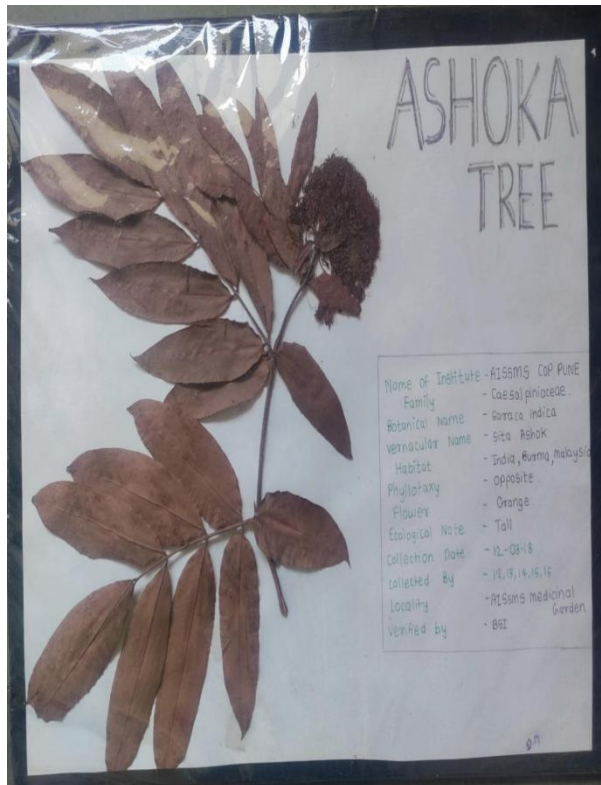 ASHOKA
TREE
Name of Institute - AISSMS COP PUNE
Family - Caesalpiniaceae.
Botanical Name - Saraca indica
Vernacular Name - Sita Ashok
Habitat - India, Burma, Malaysia
Phyllotaxy - Opposite
Flower - Orange
Ecological Note - Tall
Collection Date - 12-03-18
Collected By - 12,13,14,15,16
Locality - AISSMS medicinal
Garden
Verified by - BSI